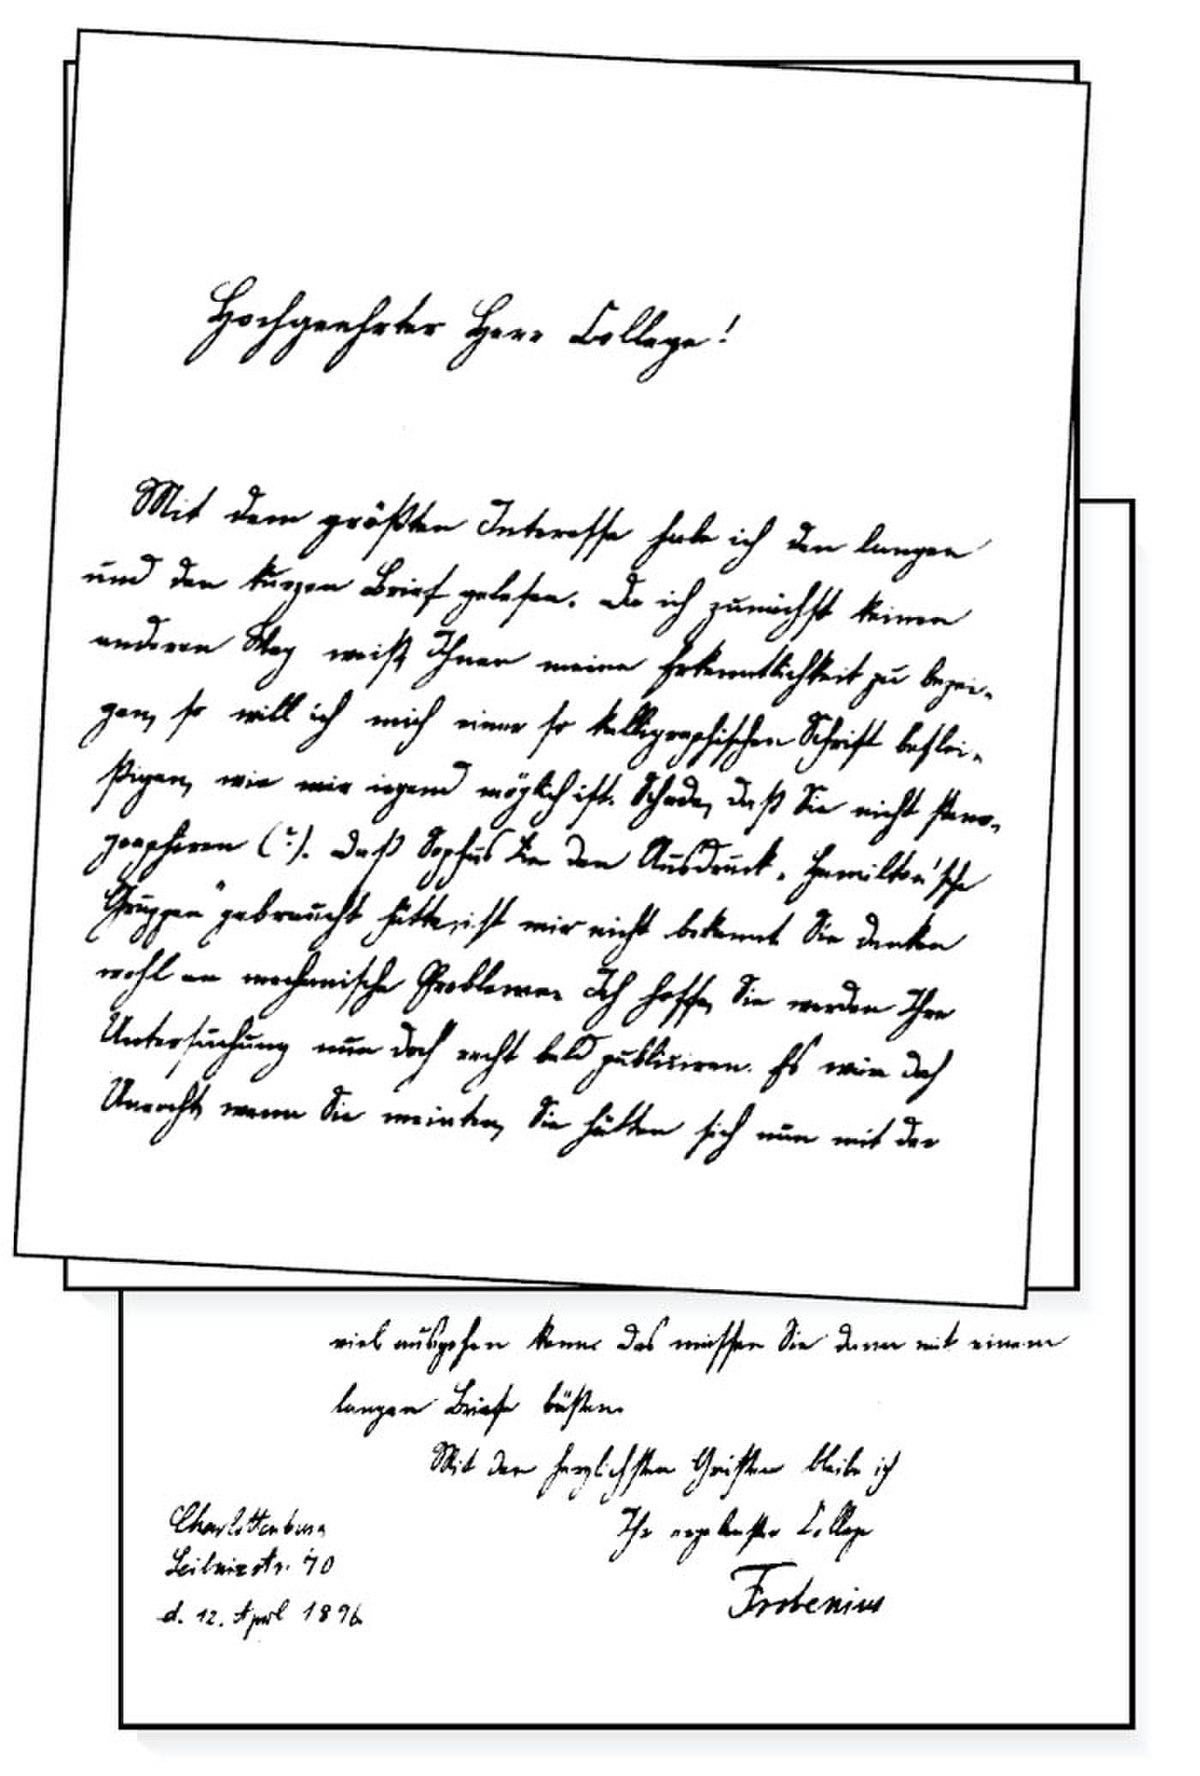 Hochgeehrter Herr College!
Mit dem größten Interesse habe ich den langen
und den kurzen Brief gelesen. Da ich zunächst keinen
anderen Weg weiß, Ihnen meine Erkenntlichkeit zu bezei-
gen, so will ich mich einer so kalligraphischen Schrift beflei-
ßigen, wie mir irgend möglich ist. Schade, daß Sie nicht steno-
graphiren (?). Daß Sophus Lie den Ausdruck „Hamilton'sche
Gruppen" gebraucht hätte, ist mir nicht bekannt. Sie denken
wohl an mechanische Probleme. Ich hoffe, Sie werden Ihre
Untersuchung nun doch recht bald publiciren. Es wäre doch
Unrecht, wenn Sie meinten, Sie hätten sich nun mit der
viel ausgehen kann. Das müssen Sie dann mit einem
langen Briefe büßen.
Mit den herzlichsten Grüßen bleibe ich
Ihr ergebenster College
Frobenius
Charlottenburg
Leibnizstr. 70
d. 12. April 1896